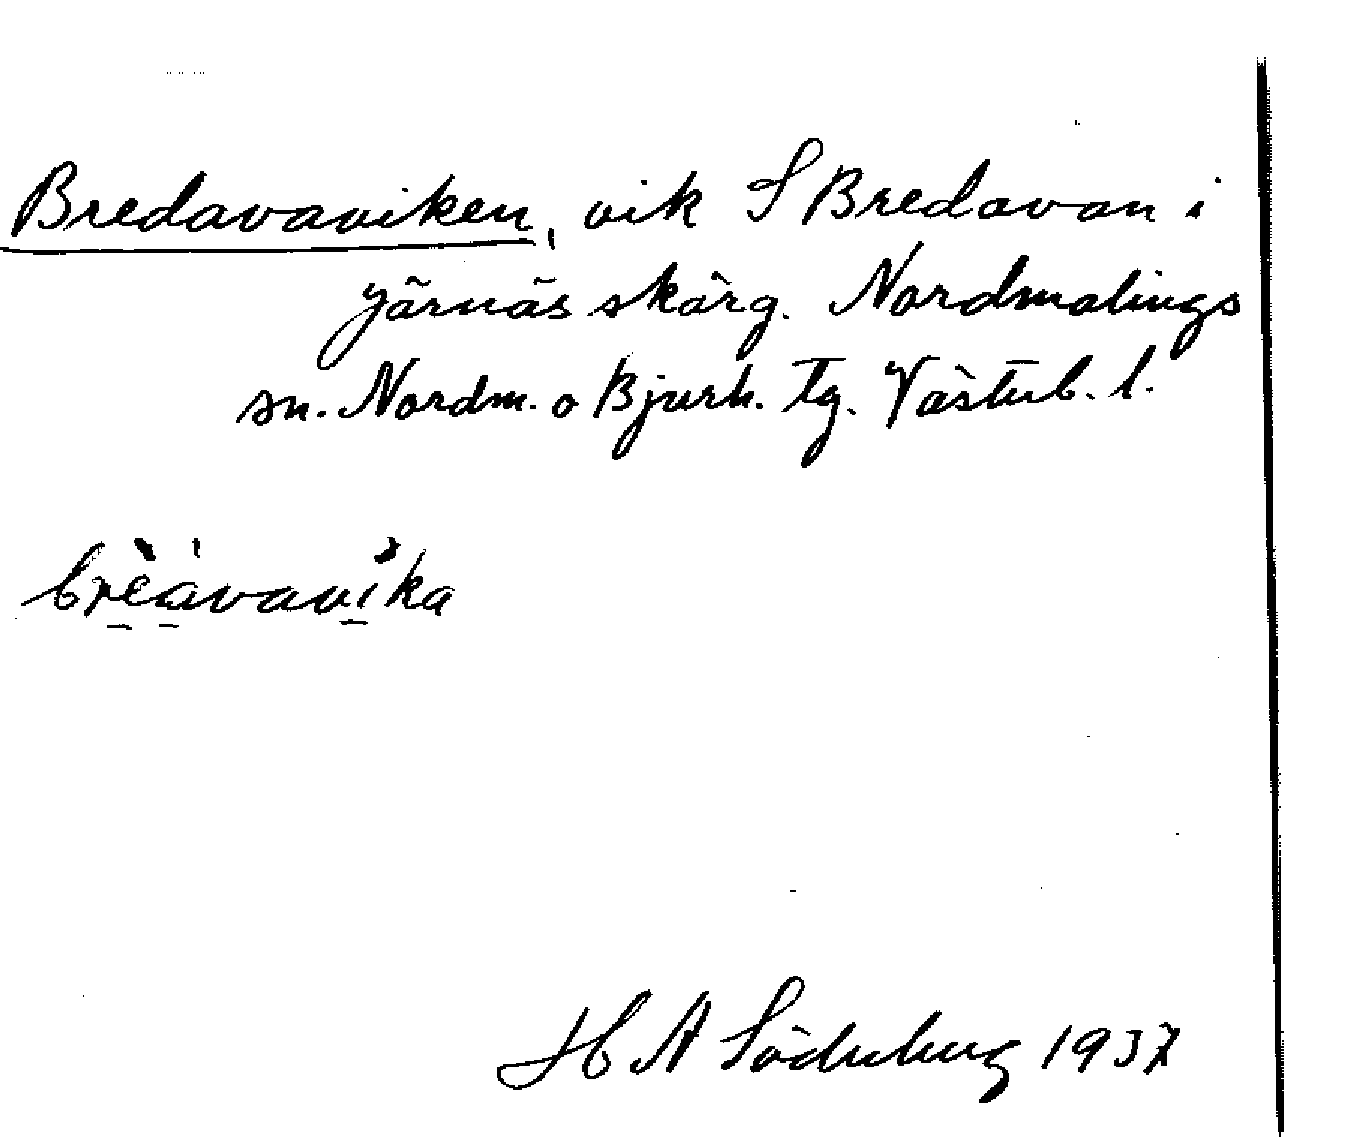 Bredavaviken, vik S Bredavan i
Järnäs skärg. Nordmalings
sn. Nordm. o Bjurh. Tg. Västerb. l.
brèávavìka
H A Söderberg 1937